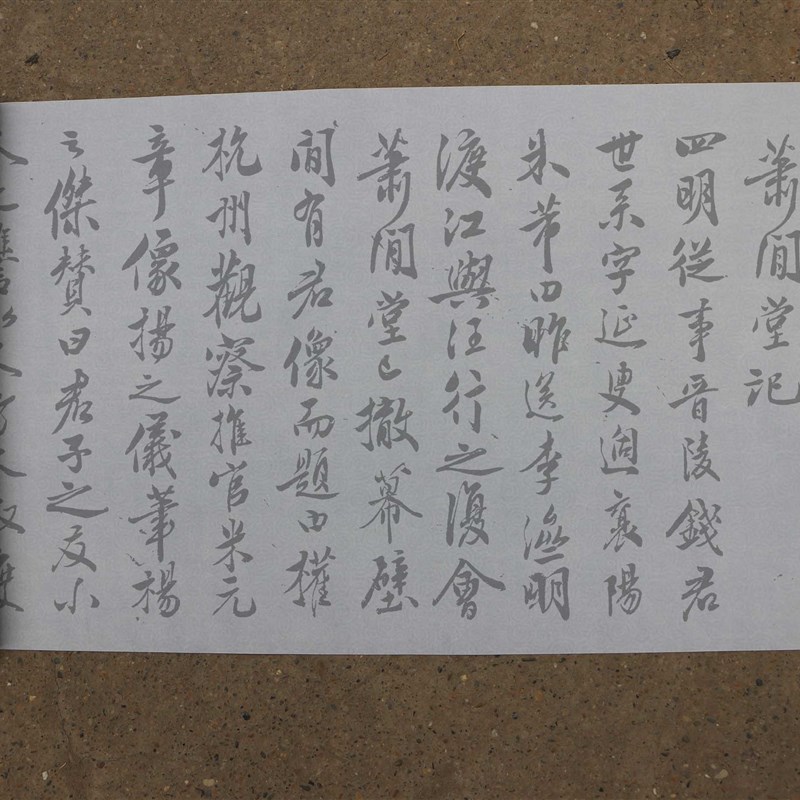 蕭閒堂記
四明從事晉陵錢君
世系字延叟過襄陽
米芾曰昨送李濟明
渡江與汪行之復會
蕭閒堂已撤幕壁
間有君像而題曰權
杭州觀察推官米元
章像揚之儀華楊
之傑贊曰君子之友小